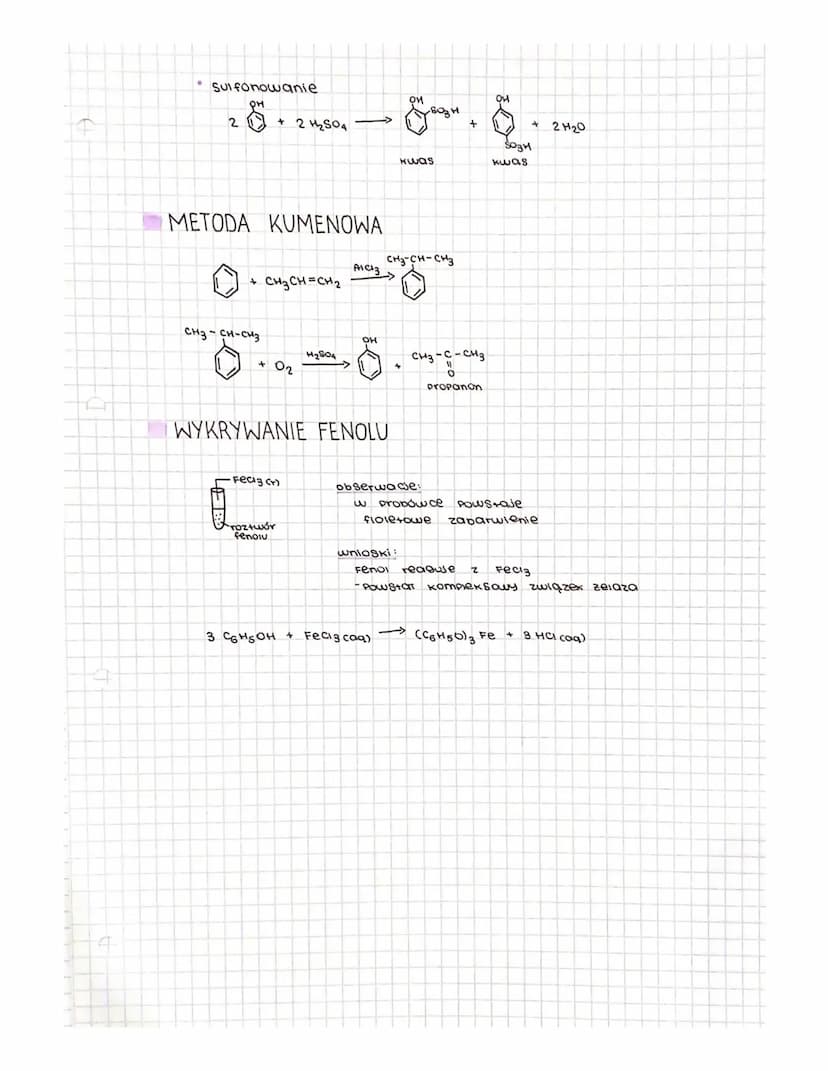 • sulfonowanie
OH OH OH
2 + 2 H₂SO₄ → SO₃H + + 2 H₂O
SO₃H
kwas kwas
METODA KUMENOWA
CH₃-CH-CH₃
+ CH₃CH=CH₂ AlCl₃ →
CH₃-CH-CH₃
OH
+ O₂ H₂SO₄ → + CH₃-C-CH₃
O
propanon
WYKRYWANIE FENOLU
FeCl₃(r)
roztwór
fenolu
obserwacje:
w probówce powstaje
fioletowe zabarwienie
wnioski:
Fenol reaguje z FeCl₃
-powstał kompleksowy związek żelaza
3 C₆H₅OH + FeCl₃(aq) → (C₆H₅O)₃Fe + 3 HCl(aq)